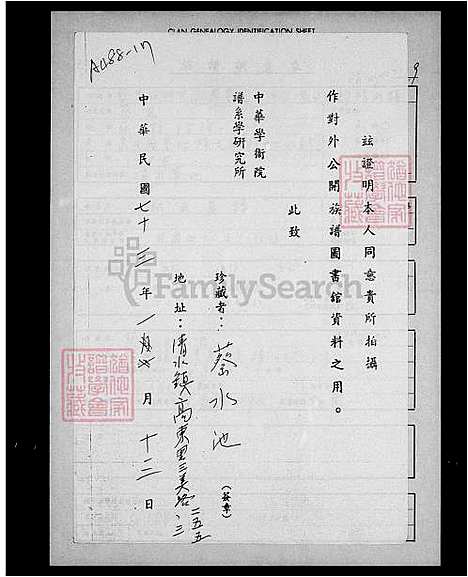 CLAN GENEALOGY IDENTIFICATION SHEET
A488-17
茲證明本人同意貴所拍攝
作對外公開族譜圖書館資料之用。
此致
中華學術院
譜系學研究所
珍藏者：蔡水池
(簽章)
地址：清水鎮高東里三美路二五五、三
中華民國七十三年一月十三日
FamilySearch